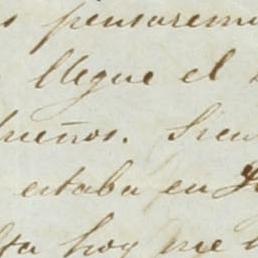 s pensaremo
llegue el
sueños. Sien
estaba en
hoy me